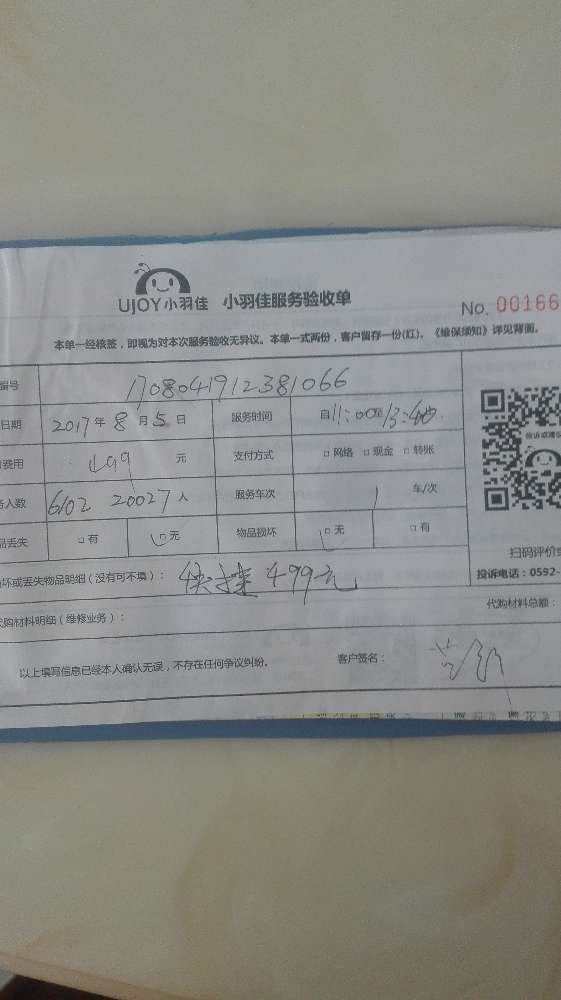 UJOY小羽佳 小羽佳服务验收单
No. 00166
本单一经核签，即视为对本次服务验收无异议。本单一式两份，客户留存一份(红)。《维保须知》详见背面。
编号 1708041912381066
日期 2017年8月5日 服务时间 自11:00至13:40
费用 499 元 支付方式 □网络 □现金 □转账
人数 6102 20027 人 服务车次 1 车/次
品丢失 □有 □无 物品损坏 □无 □有
坏或丢失物品明细（没有可不填）： 499元
代购材料明细（维修业务）： 代购材料总额：
以上填写信息已经本人确认无误，不存在任何争议纠纷。 客户签名：
投诉或建
扫码评价
投诉电话：0592-